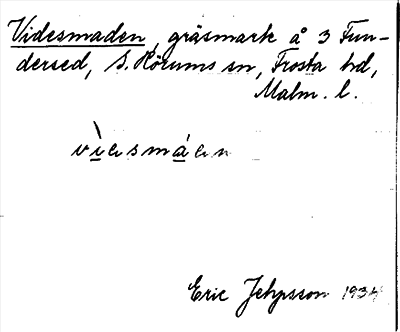 Videsmaden, gräsmark å 3 Fun-
dersed, S. Hörums sn, Frosta hd,
Malm. l.
Eric Jepsson 1934